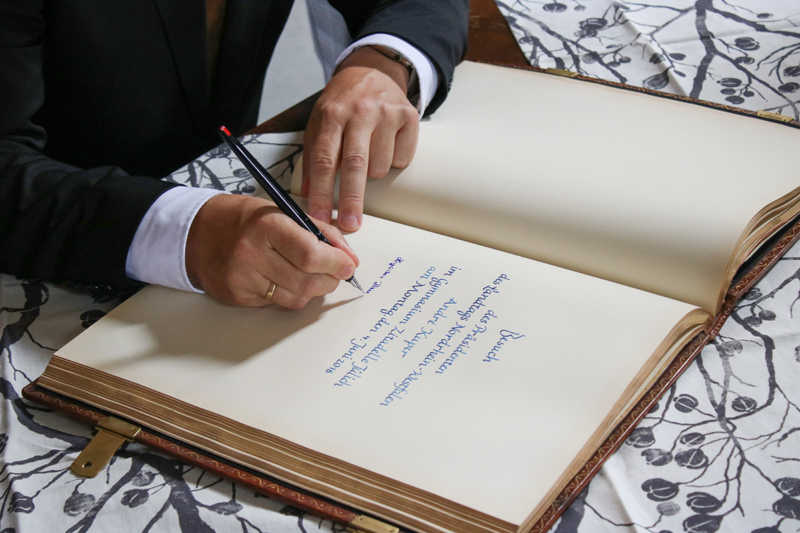 Besuch
des Präsidenten
des Landtags Nordrhein-Westfalen
André Kuper
im Gymnasium Zitadelle Jülich
am Montag, den 4. Juni 2018